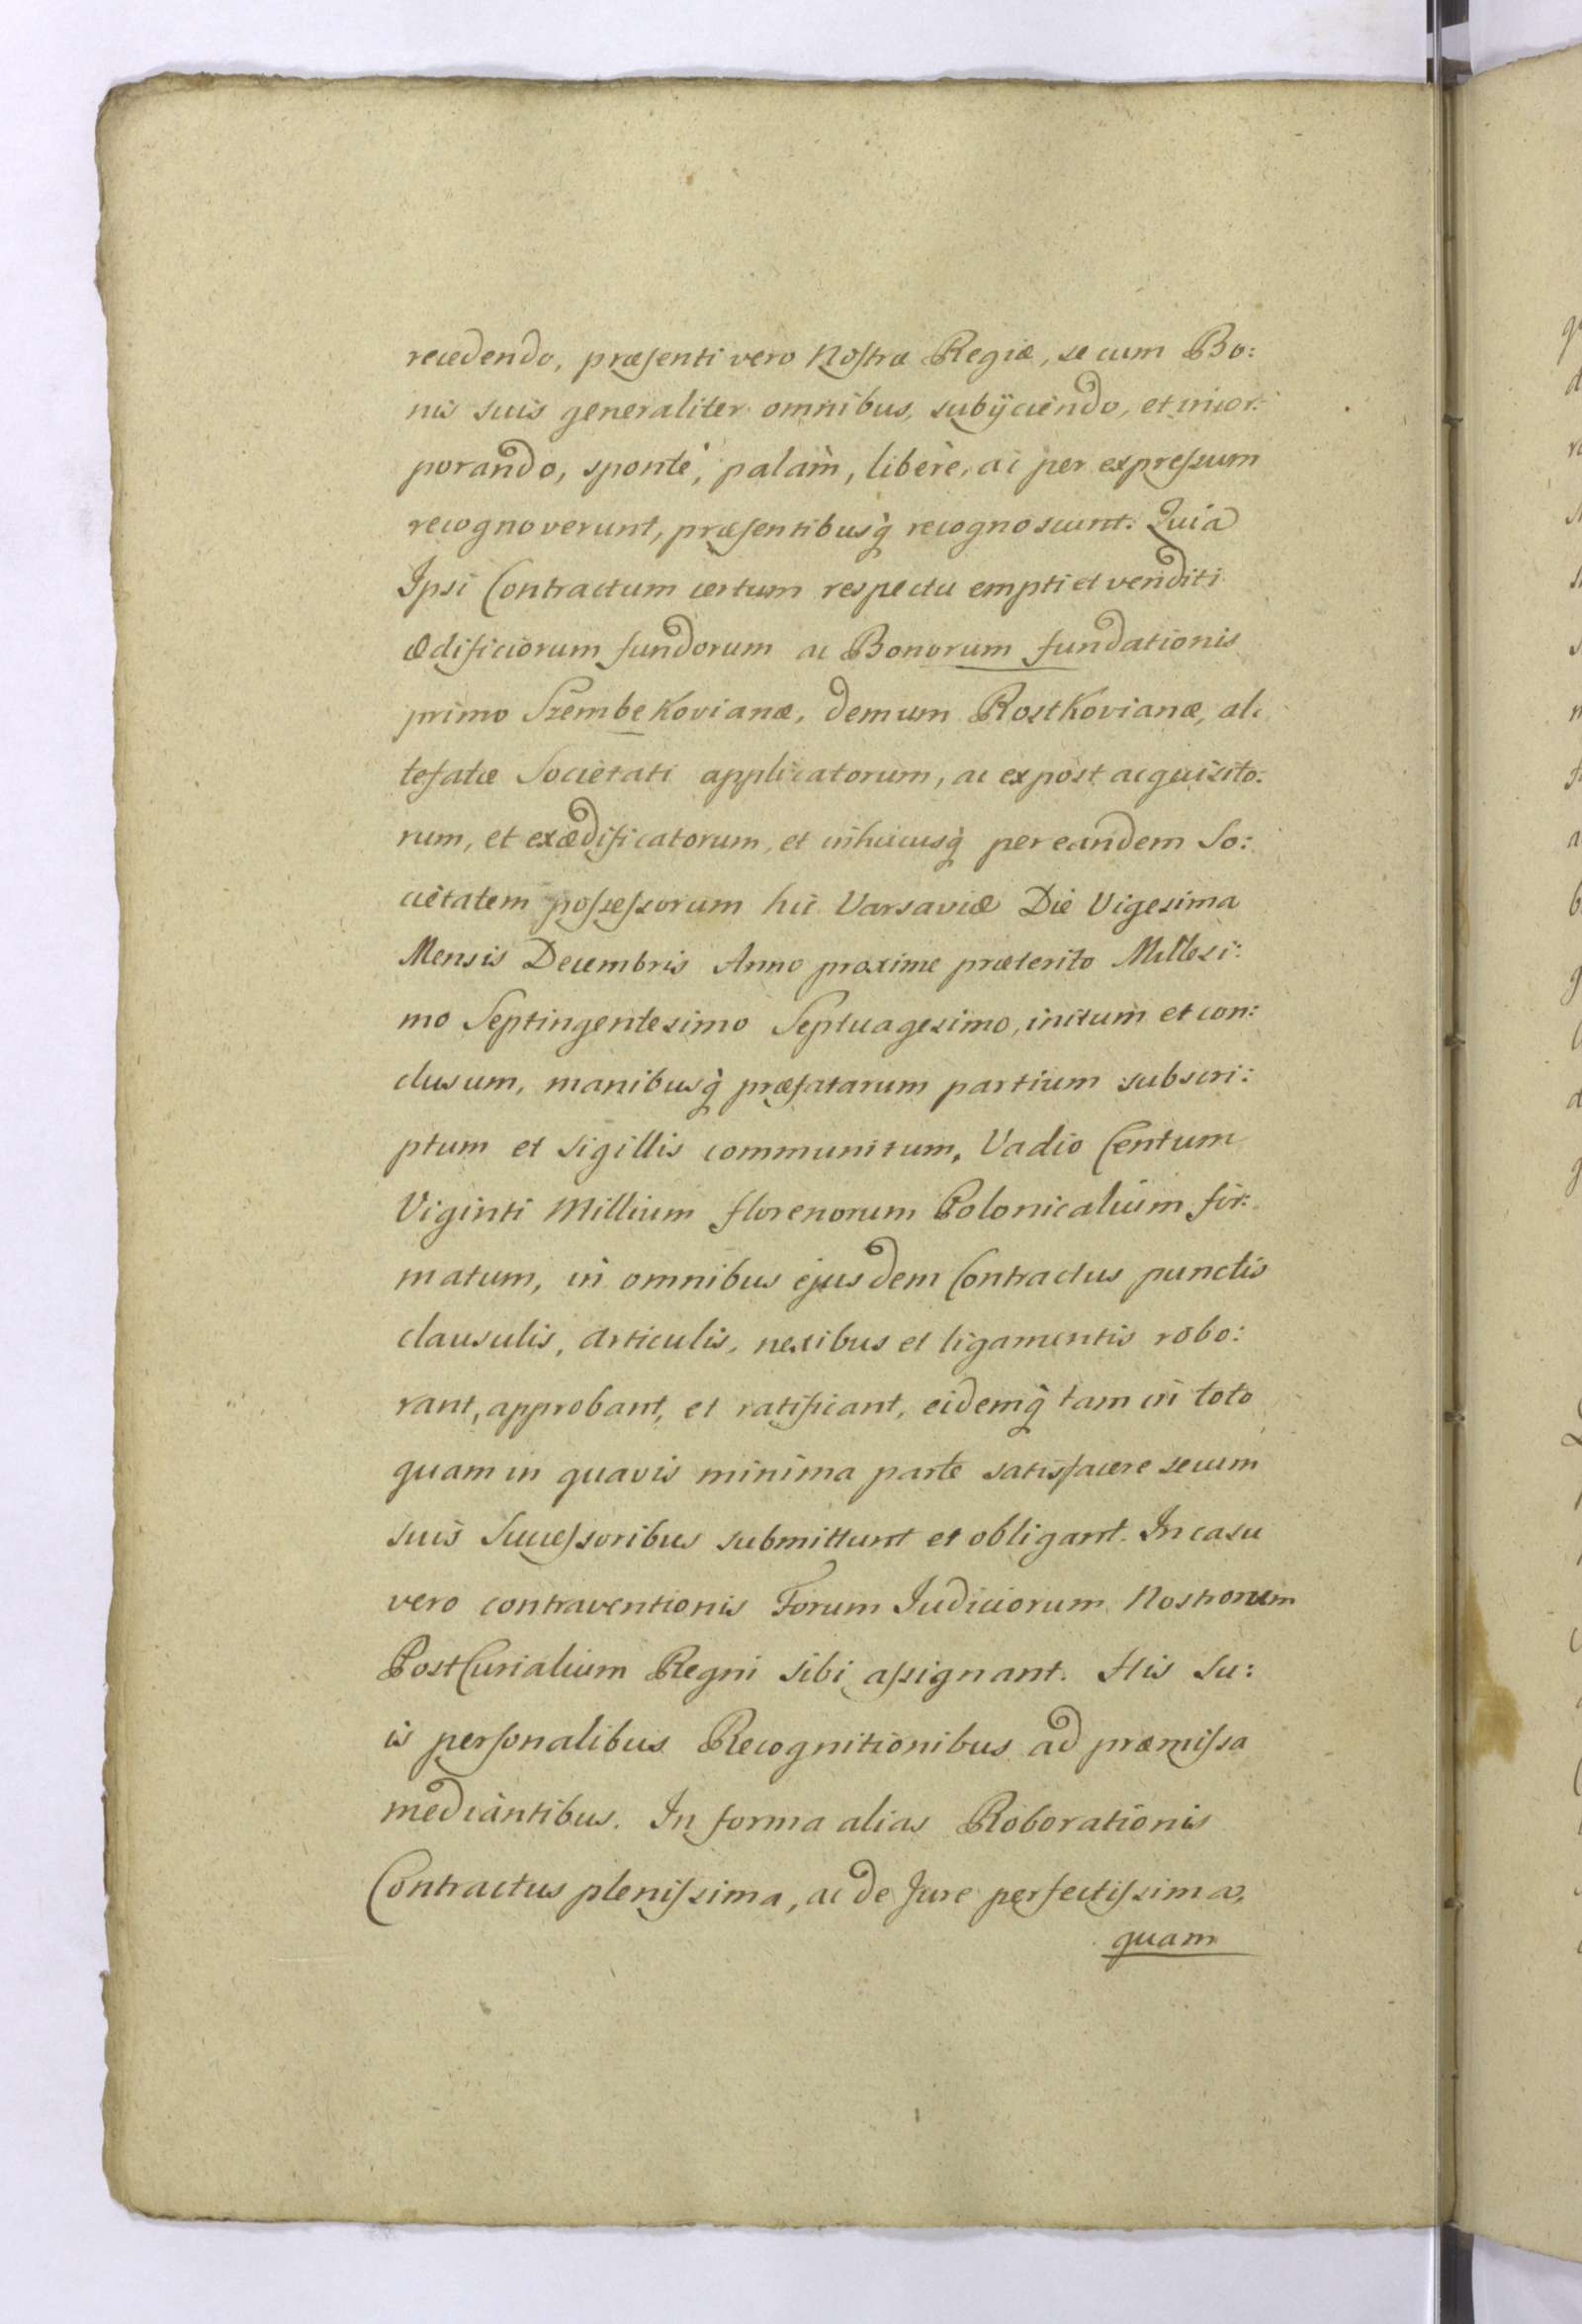 recedendo, præsenti vero Nostræ Regiæ, se cum Bo:
nis suis generaliter omnibus, subÿciendo, et incor:
porando, sponte, palam, libere, ac per expressum
recognoverunt, præsentibusq̀ recognoscunt. Quia
Ipsi Contractum certum respectu empti et venditi
ædificiorum fundorum ac Bonorum fundationis
primo Szembekovianæ, demum Rostkovianæ, al:
tefatæ Societati applicatorum, ac ex post acquisito:
rum, et exædificatorum, et inhucusq̀ per eandem So:
cietatem possessorum hic Varsaviæ Die Vigesima
Mensis Decembris Anno proxime præterito Millesi:
mo Septingentesimo Septuagesimo, initum et con:
clusum, manibusq̀ præfatarum partium subscri:
ptum et sigillis communitum, Vadio Centum
Viginti Millium florenorum Polonicalium fir:
matum, in omnibus ejusdem Contractus punctis
clausulis, articulis, nexibus et ligamentis robo:
rant, approbant, et ratificant, eidemq̀ tam in toto
quam in quavis minima parte satisfacere secum
suis Successoribus submittunt et obligant. In casu
vero contraventionis Forum Judiciorum Nostrorum
PostCurialium Regni sibi assignant. His Su:
is personalibus Recognitionibus ad præmissa
mediantibus. In forma alias Roborationis
Contractus plenissima, ac de Jure perfectissima,
quam